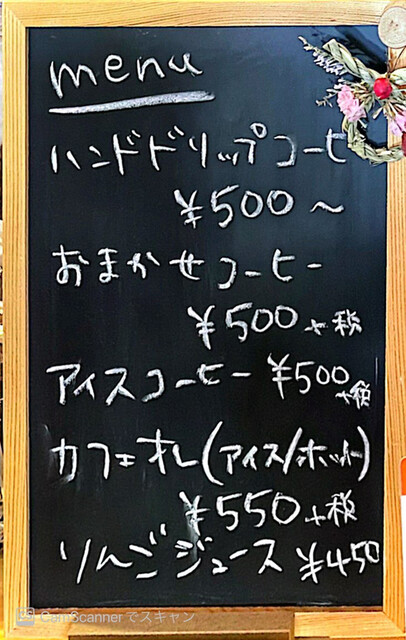 menu
ハンドドリップコーヒ
¥500〜
おまかせコーヒー
¥500+税
アイスコーヒー ¥500+税
カフェオレ(アイス/ホット)
¥550+税
りんごジュース ¥450
CamScannerでスキャン